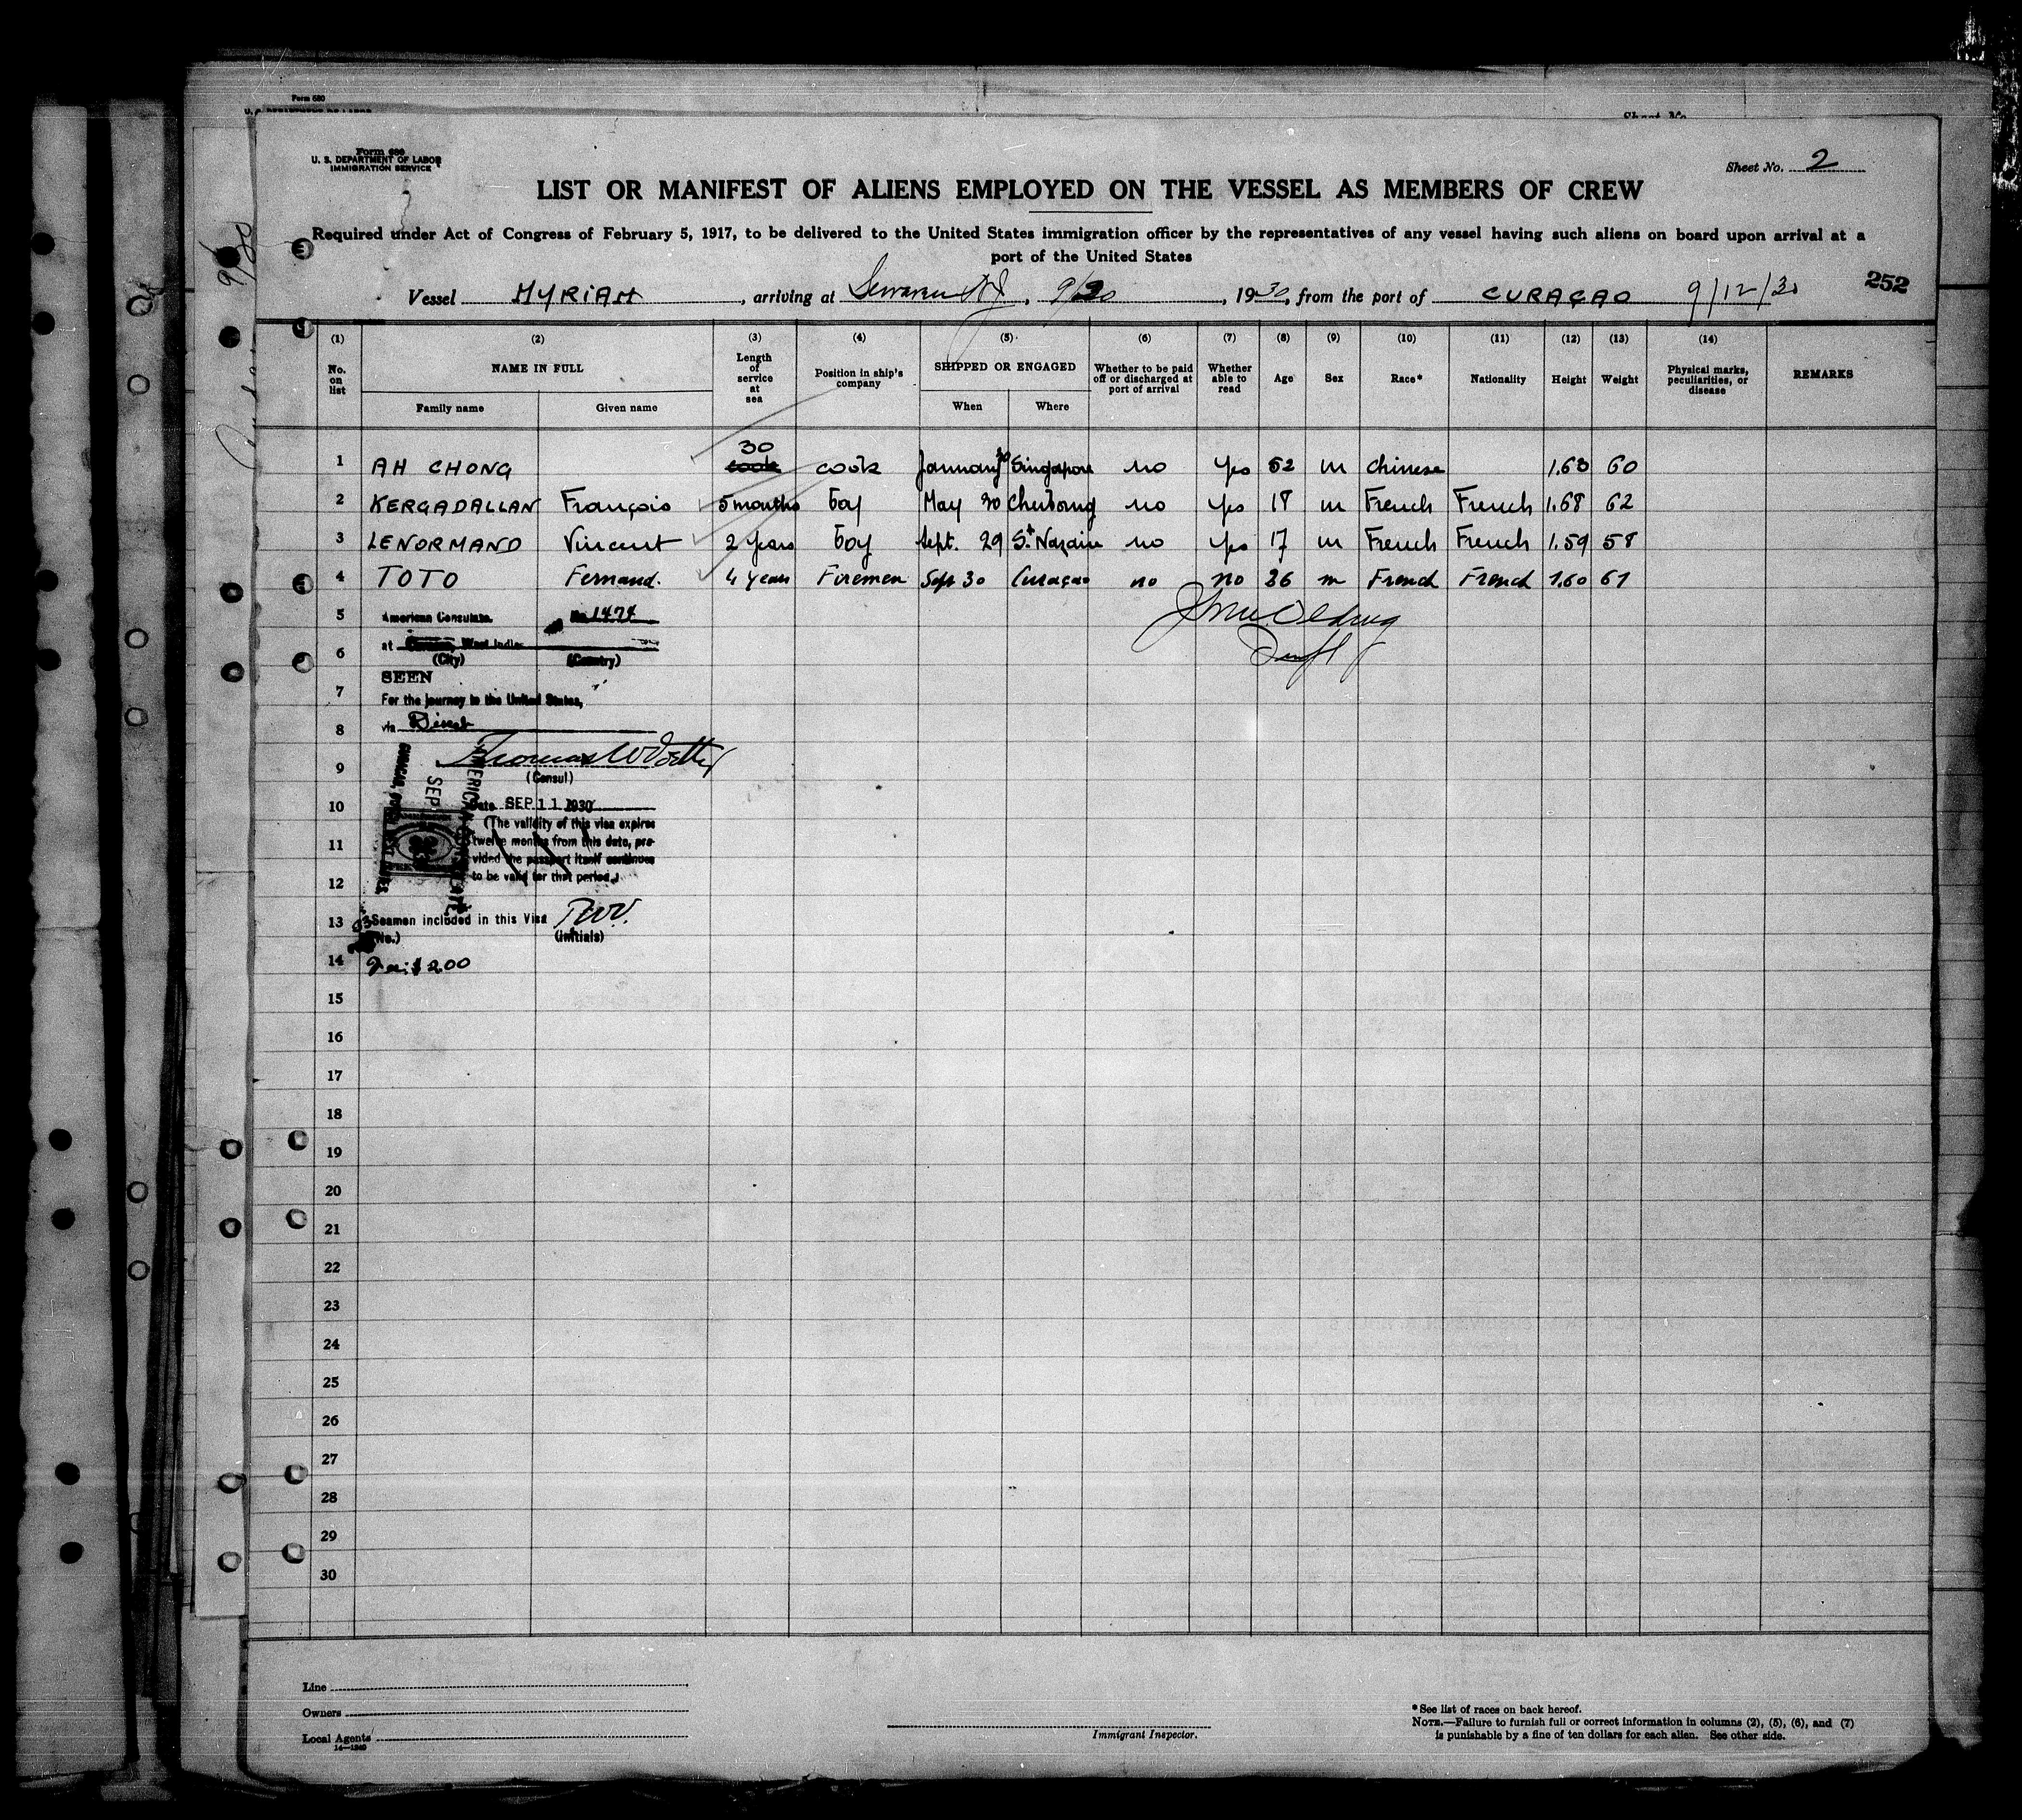 Form 680
Sheet No.
Form 680
U. S. DEPARTMENT OF LABOR
IMMIGRATION SERVICE
Sheet No. 2
LIST OR MANIFEST OF ALIENS EMPLOYED ON THE VESSEL AS MEMBERS OF CREW
Required under Act of Congress of February 5, 1917, to be delivered to the United States immigration officer by the representatives of any vessel having such aliens on board upon arrival at a
port of the United States
252
Vessel MYRIAM, arriving at, 1930, from the port of CURAÇAO 9/12/30
(1) (2) (3) (4) (5) (6) (7) (8) (9) (10) (11) (12) (13) (14)
No. on list NAME IN FULL Length of service at sea Position in ship's company SHIPPED OR ENGAGED Whether to be paid off or discharged at port of arrival Whether able to read Age Sex Race* Nationality Height Weight Physical marks, peculiarities, or disease REMARKS
Family name Given name When Where
1 AH CHONG 30 cook January 30 Singapore no Yes 52 m Chinese 1.63 60
2 KERGADALLAN François 5 months boy May 30 Cherbourg no Yes 18 m French French 1.68 62
3 LENORMAND Vincent 2 years boy Sept. 29 St Nazaire no Yes 17 m French French 1.59 58
4 TOTO Fernand. 4 years Firemen Sept 30 Curaçao no no 36 m French French 1.60 61
5 American Consulate No 1474
at West Indies
6 (City) (Country)
SEEN
7 For the journey to the United States,
8 via Direct
9 (Consul)
10 Date SEP 11 1930
(The validity of this visa expires
11 twelve months from this date, pro-
vided the passport itself continues
12 to be valid for that period.)
AMERICAN CONSULATE
SEP
13 Seamen included in this Visa
(No.) (Initials)
14 $2.00
15
16
17
18
19
20
21
22
23
24
25
26
27
28
29
30
Line
Owners
Local Agents
14—1240
Immigrant Inspector.
* See list of races on back hereof.
NOTE.—Failure to furnish full or correct information in columns (2), (5), (6), and (7)
is punishable by a fine of ten dollars for each alien. See other side.